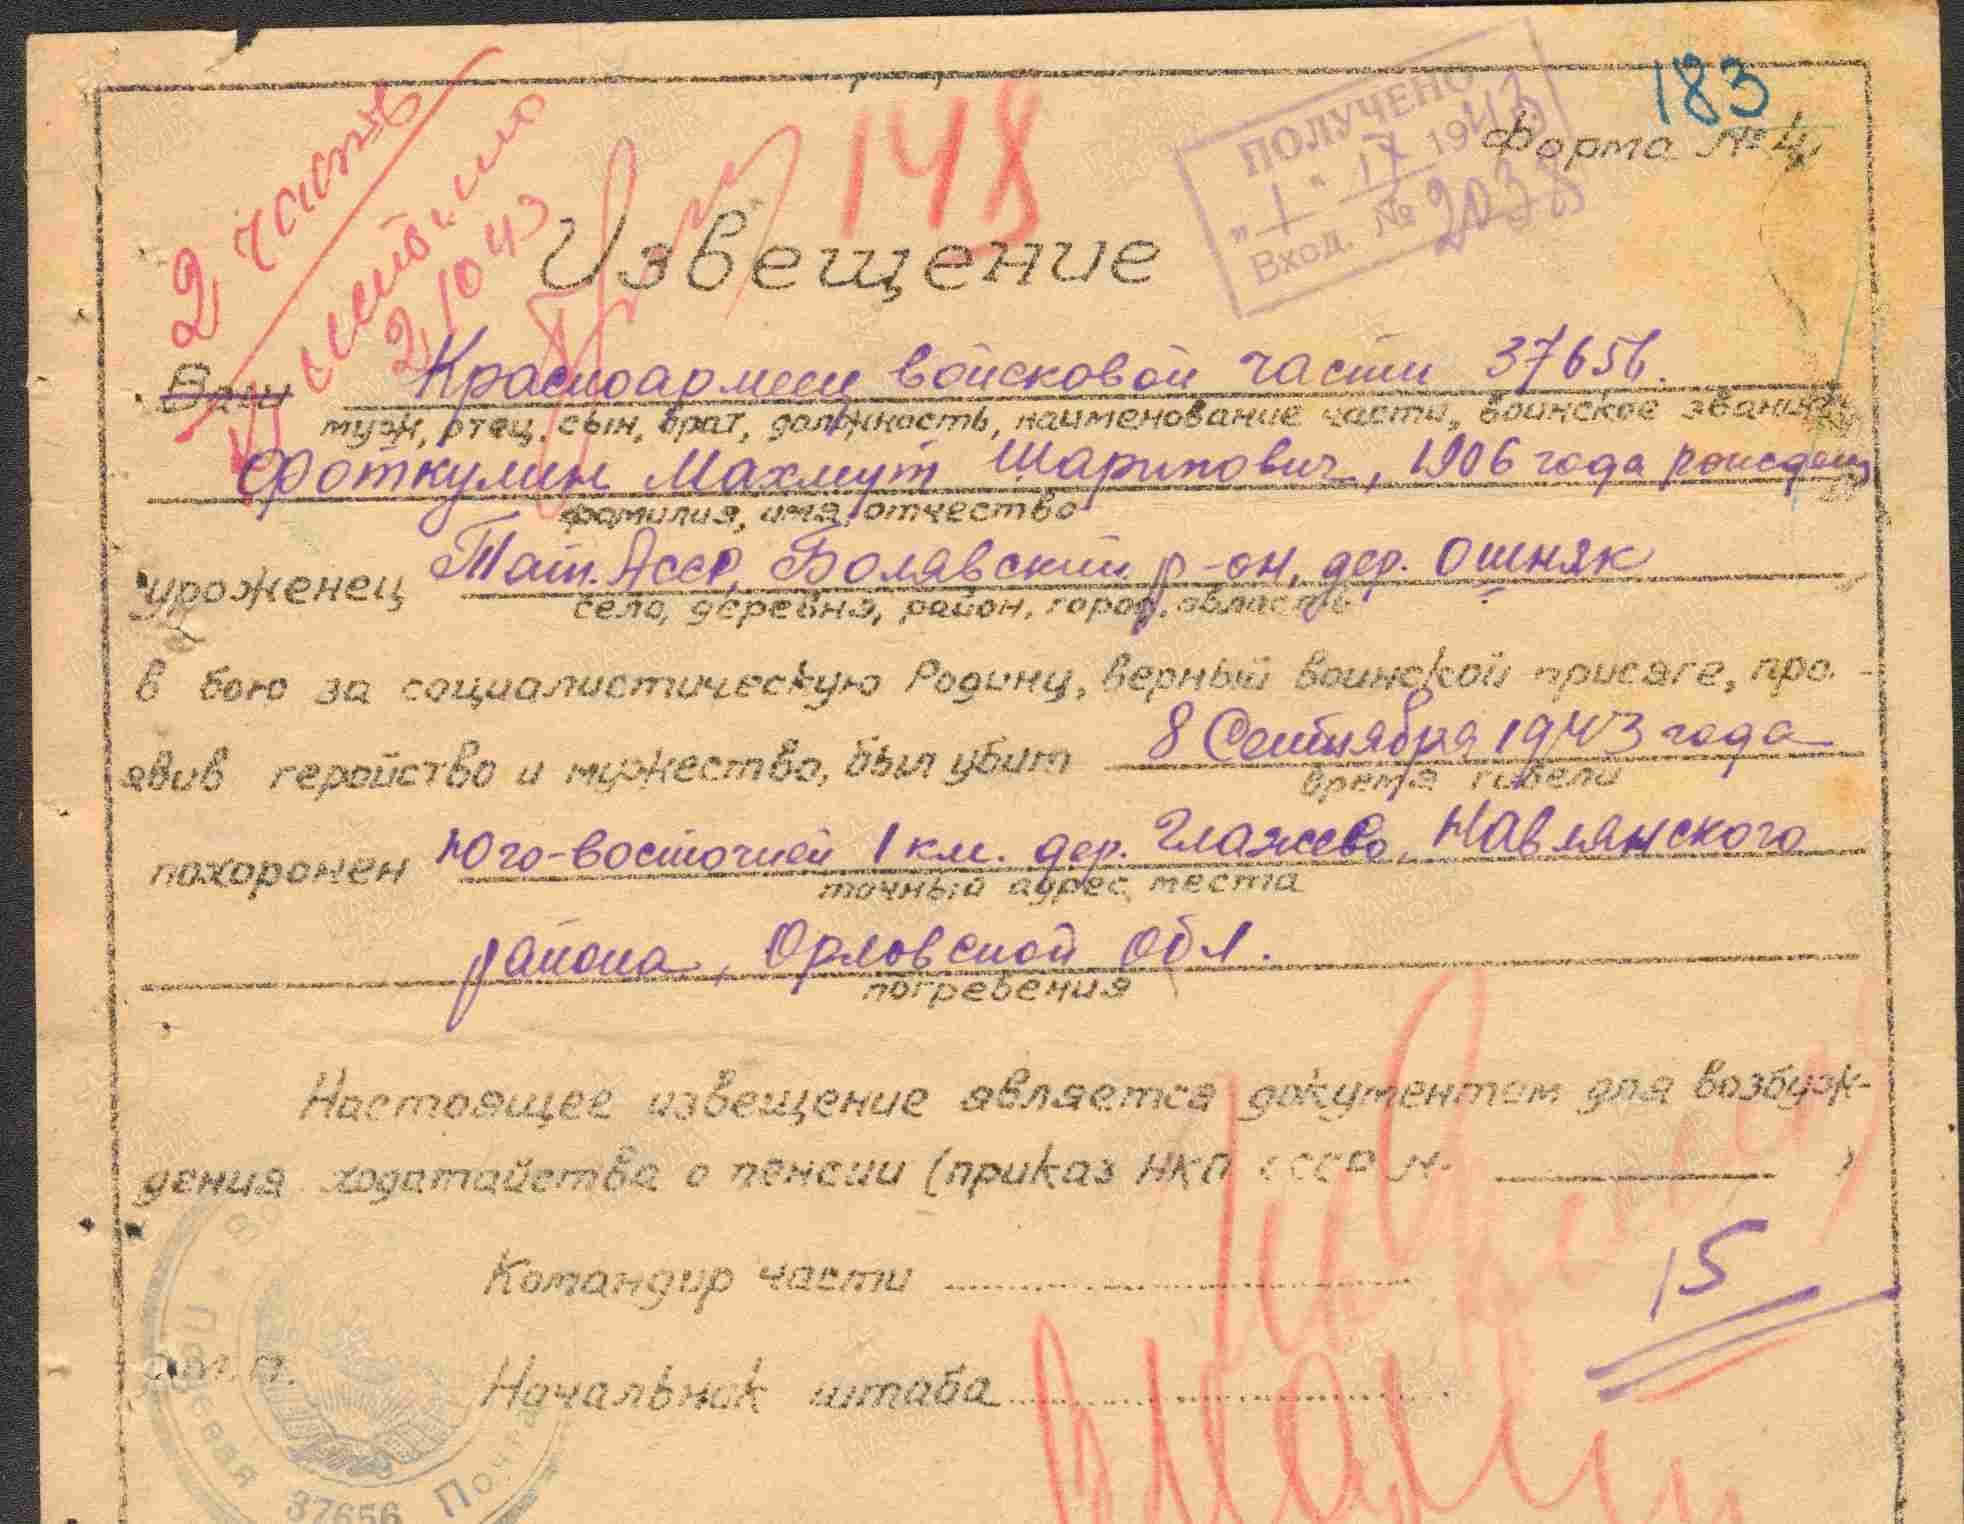 183
Форма № 4
ПОЛУЧЕНО
„1“ IX 1943
Вход. № 2038
148
2 часть
21043
Извещение
Ваш Красноармеец войсковой части 37656.
муж, отец, сын, брат, должность, наименование части, воинское звание
Фоткулин Махмут Шарипович, 1906 года рожден
фамилия, имя, отчество
уроженец Тат. Асср, Болявский р-он, дер. Ошняк
село, деревня, район, город, область
в бою за социалистическую Родину, верный воинской присяге, про-
явив геройство и мужество, был убит 8 Сентября 1943 года
время гибели
похоронен Юго-восточней 1 км. дер. Глажево, Навлянского
точный адрес места
района, Орловской обл.
погребения
Настоящее извещение является документом для возбуж-
дения ходатайства о пенсии (приказ НКО СССР №. )
Командир части
15
М.П.
Начальник штаба
Полевая Почта
37656